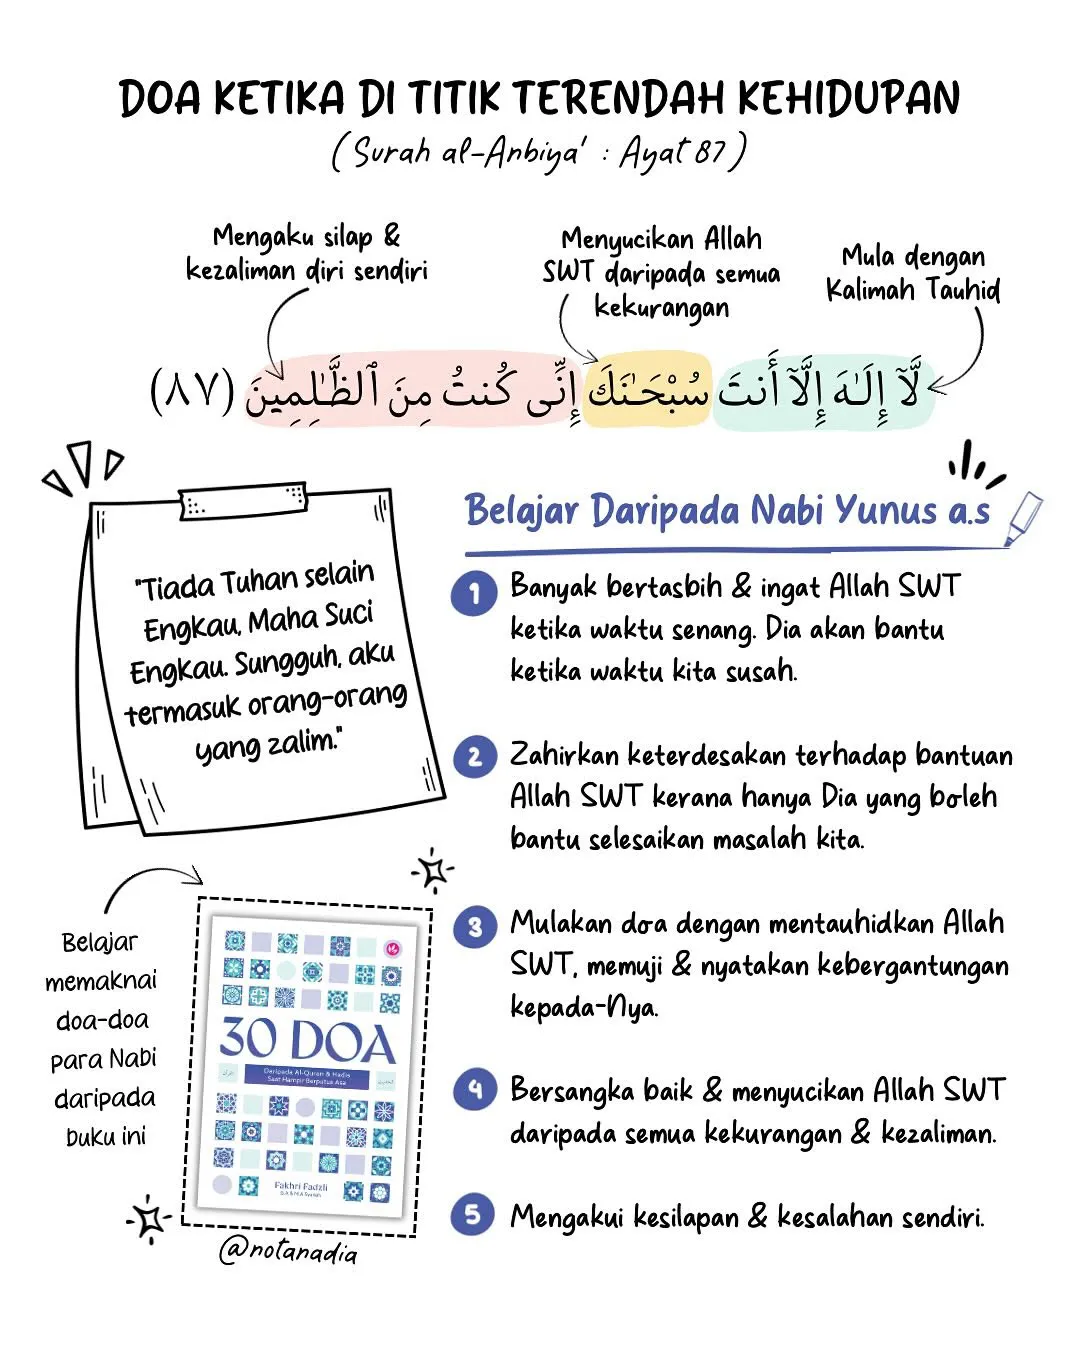 DOA KETIKA DI TITIK TERENDAH KEHIDUPAN
(Surah al-Anbiya' : Ayat 87)
Mengaku silap &
kezaliman diri sendiri
Menyucikan Allah
SWT daripada semua
kekurangan
Mula dengan
Kalimah Tauhid
لَّآ إِلَـٰهَ إِلَّآ أَنتَ سُبْحَـٰنَكَ إِنِّى كُنتُ مِنَ ٱلظَّـٰلِمِينَ (٨٧)
"Tiada Tuhan selain
Engkau, Maha Suci
Engkau. Sungguh, aku
termasuk orang-orang
yang zalim."
Belajar Daripada Nabi Yunus a.s
1 Banyak bertasbih & ingat Allah SWT
ketika waktu senang. Dia akan bantu
ketika waktu kita susah.
2 Zahirkan keterdesakan terhadap bantuan
Allah SWT kerana hanya Dia yang boleh
bantu selesaikan masalah kita.
3 Mulakan doa dengan mentauhidkan Allah
SWT, memuji & nyatakan kebergantungan
kepada-Nya.
4 Bersangka baik & menyucikan Allah SWT
daripada semua kekurangan & kezaliman.
5 Mengakui kesilapan & kesalahan sendiri.
Belajar
memaknai
doa-doa
para Nabi
daripada
buku ini
30 DOA
Daripada Al-Quran & Hadis
Saat Hampir Berputus Asa
Fakhri Fadzli
@notanadia